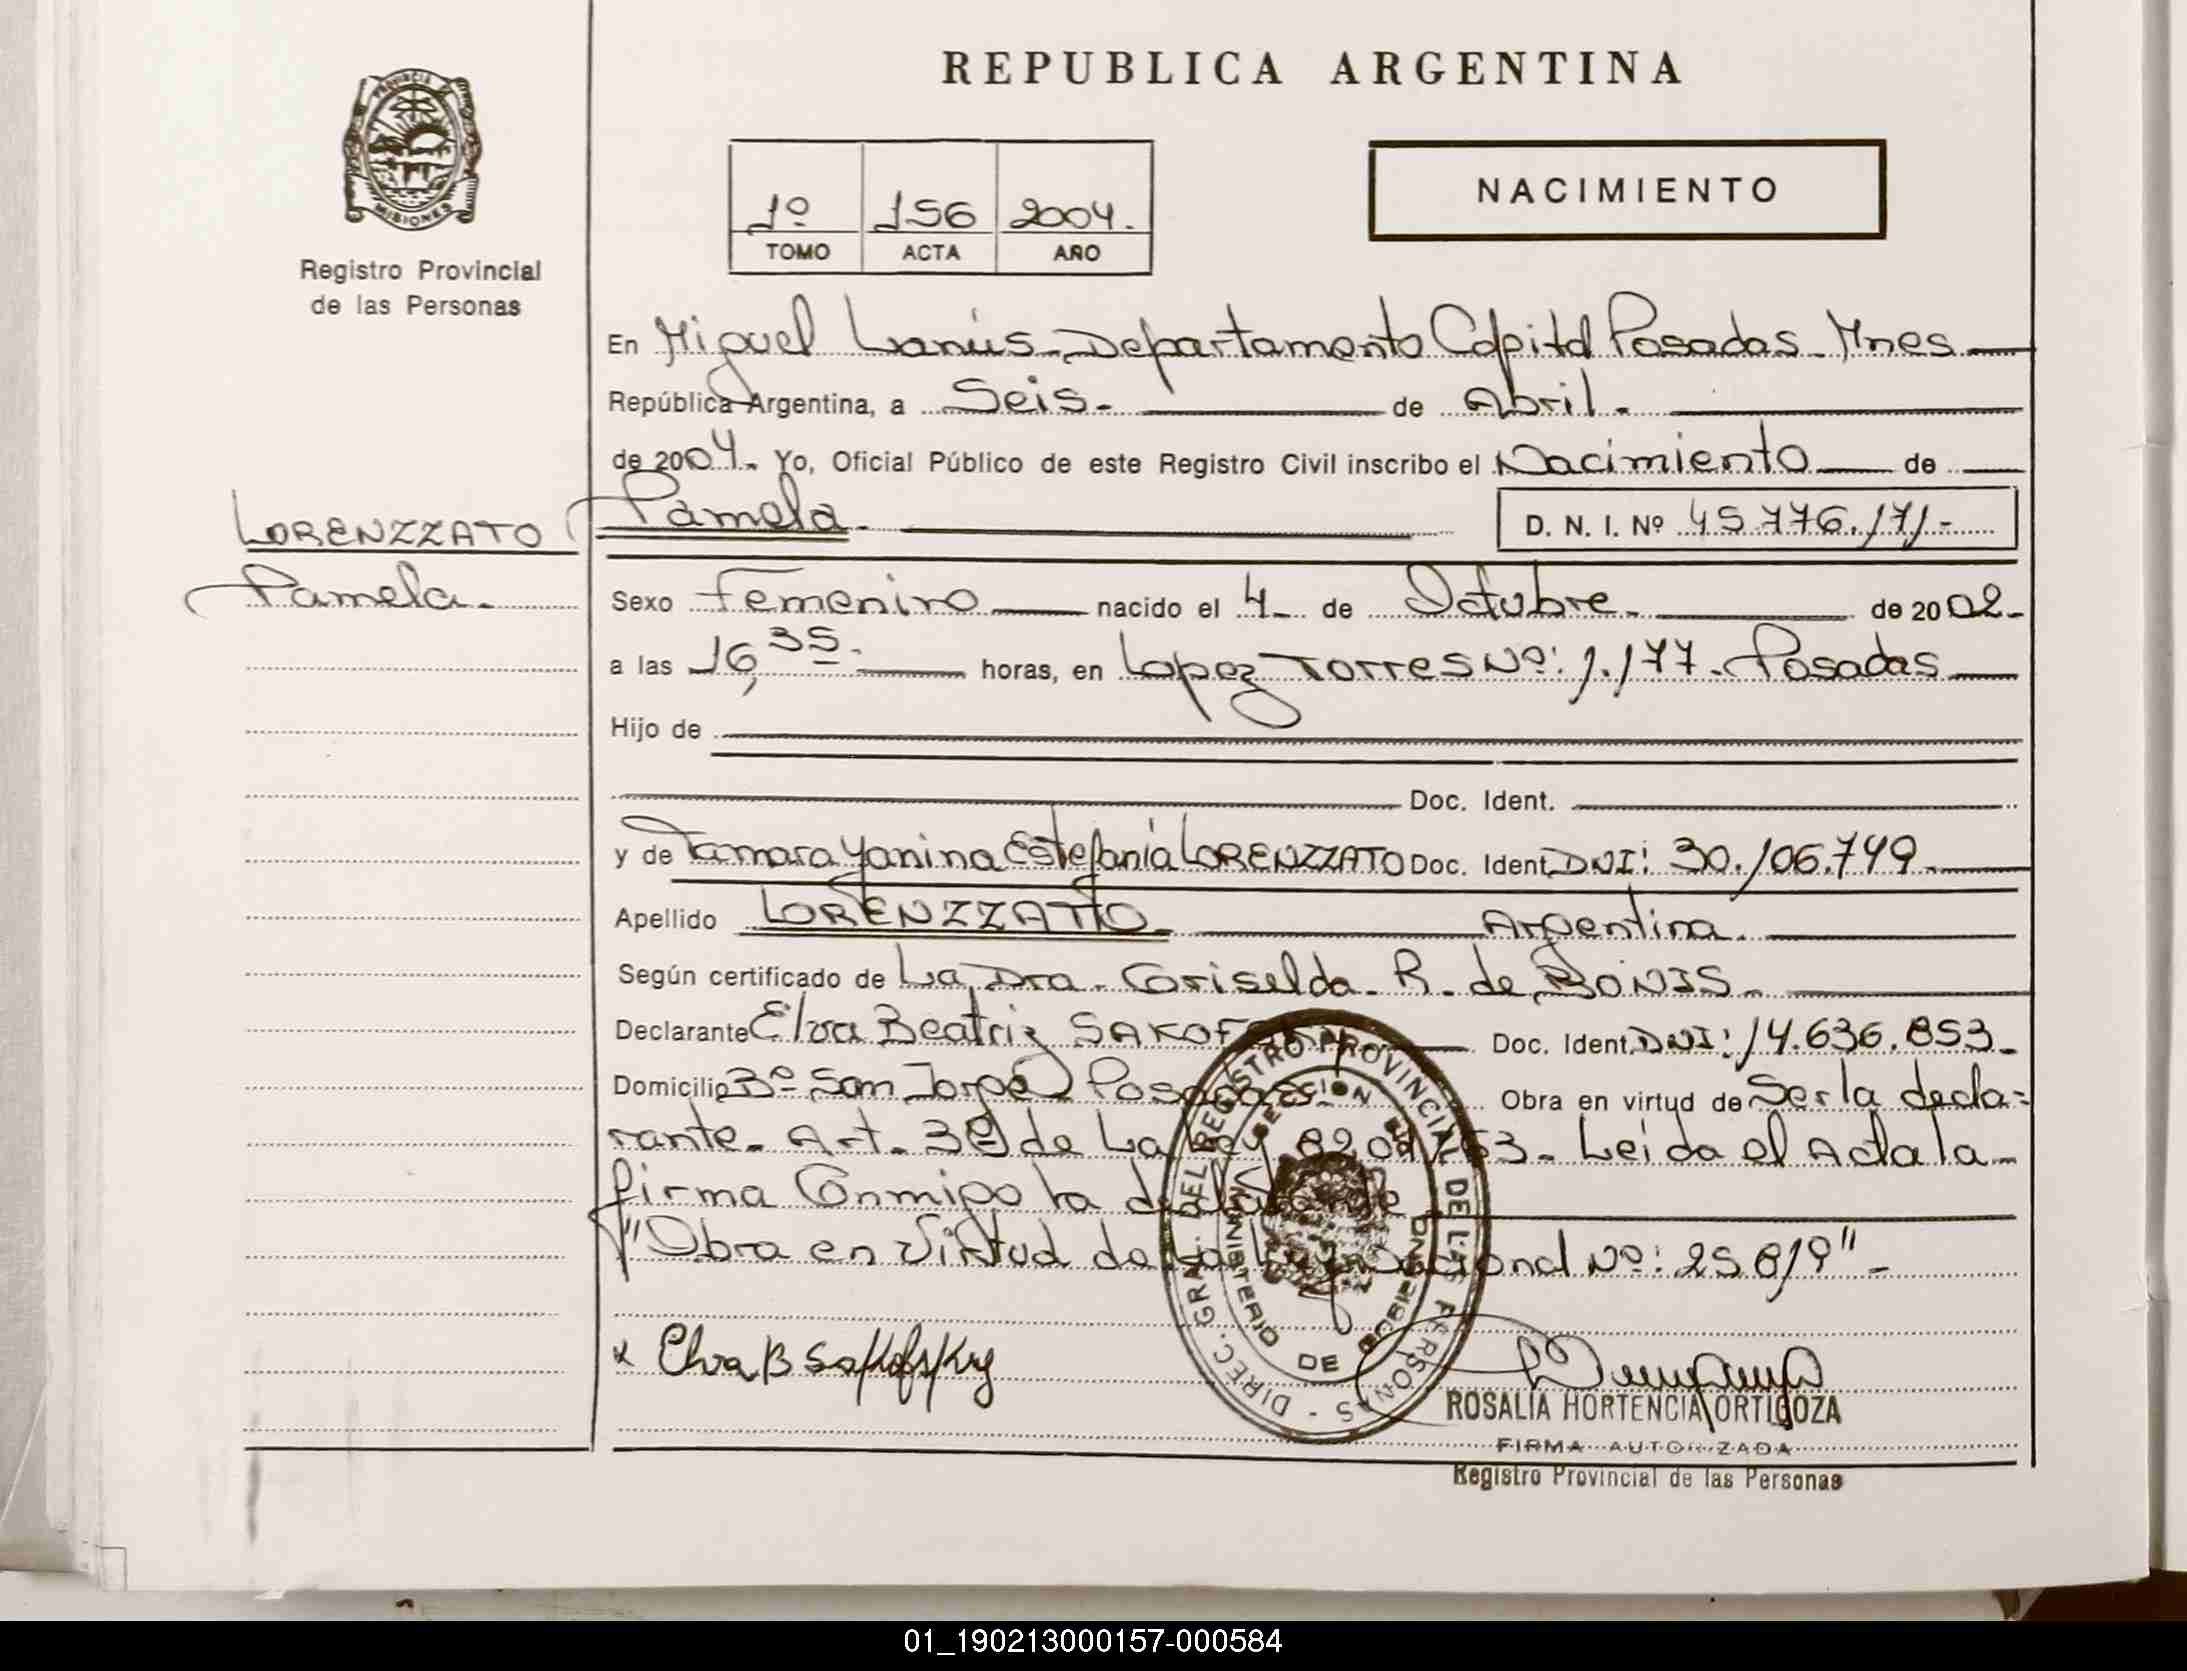 REPUBLICA ARGENTINA
PROVINCIA DE
MISIONES
Registro Provincial
de las Personas
NACIMIENTO
1º 156 2004.
TOMO ACTA AÑO
En Miguel Lanús - Departamento Capital Posadas - Mnes
República Argentina, a Seis. de Abril.
de 2004. Yo, Oficial Público de este Registro Civil inscribo el Nacimiento de
LORENZZATO
Pamela.
Pamela. D. N. I. Nº 45.776.171.-
Sexo Femenino nacido el 4 de Octubre. de 2002.
a las 16,35. horas, en Lopez Torres Nº: 1.177. Posadas
Hijo de
Doc. Ident.
y de Tamara Yanina Estefanía LORENZZATO Doc. Ident. DNI: 30.106.749.
Apellido LORENZZATO Argentina.
Según certificado de La Dra. Griselda. R. de BONIS.
Declarante Elva Beatriz Doc. Ident. DNI: 14.636.853.
Domicilio Bº San Jorge Posadas. Obra en virtud de Ser la decla-
rante. Art. 3º de La Ley Leida el Acta la
firma Conmigo la declarante
"Obra en Virtud de La Ley Nacional Nº: 25819" -
x Elva B Sakofsky
DIREC. GRAL. DEL REGISTRO PROVINCIAL DE LAS PERSONAS -
MINISTERIO DE GOBIERNO
ROSALIA HORTENCIA ORTIGOZA
FIRMA AUTORIZADA
Registro Provincial de las Personas
01_190213000157-000584